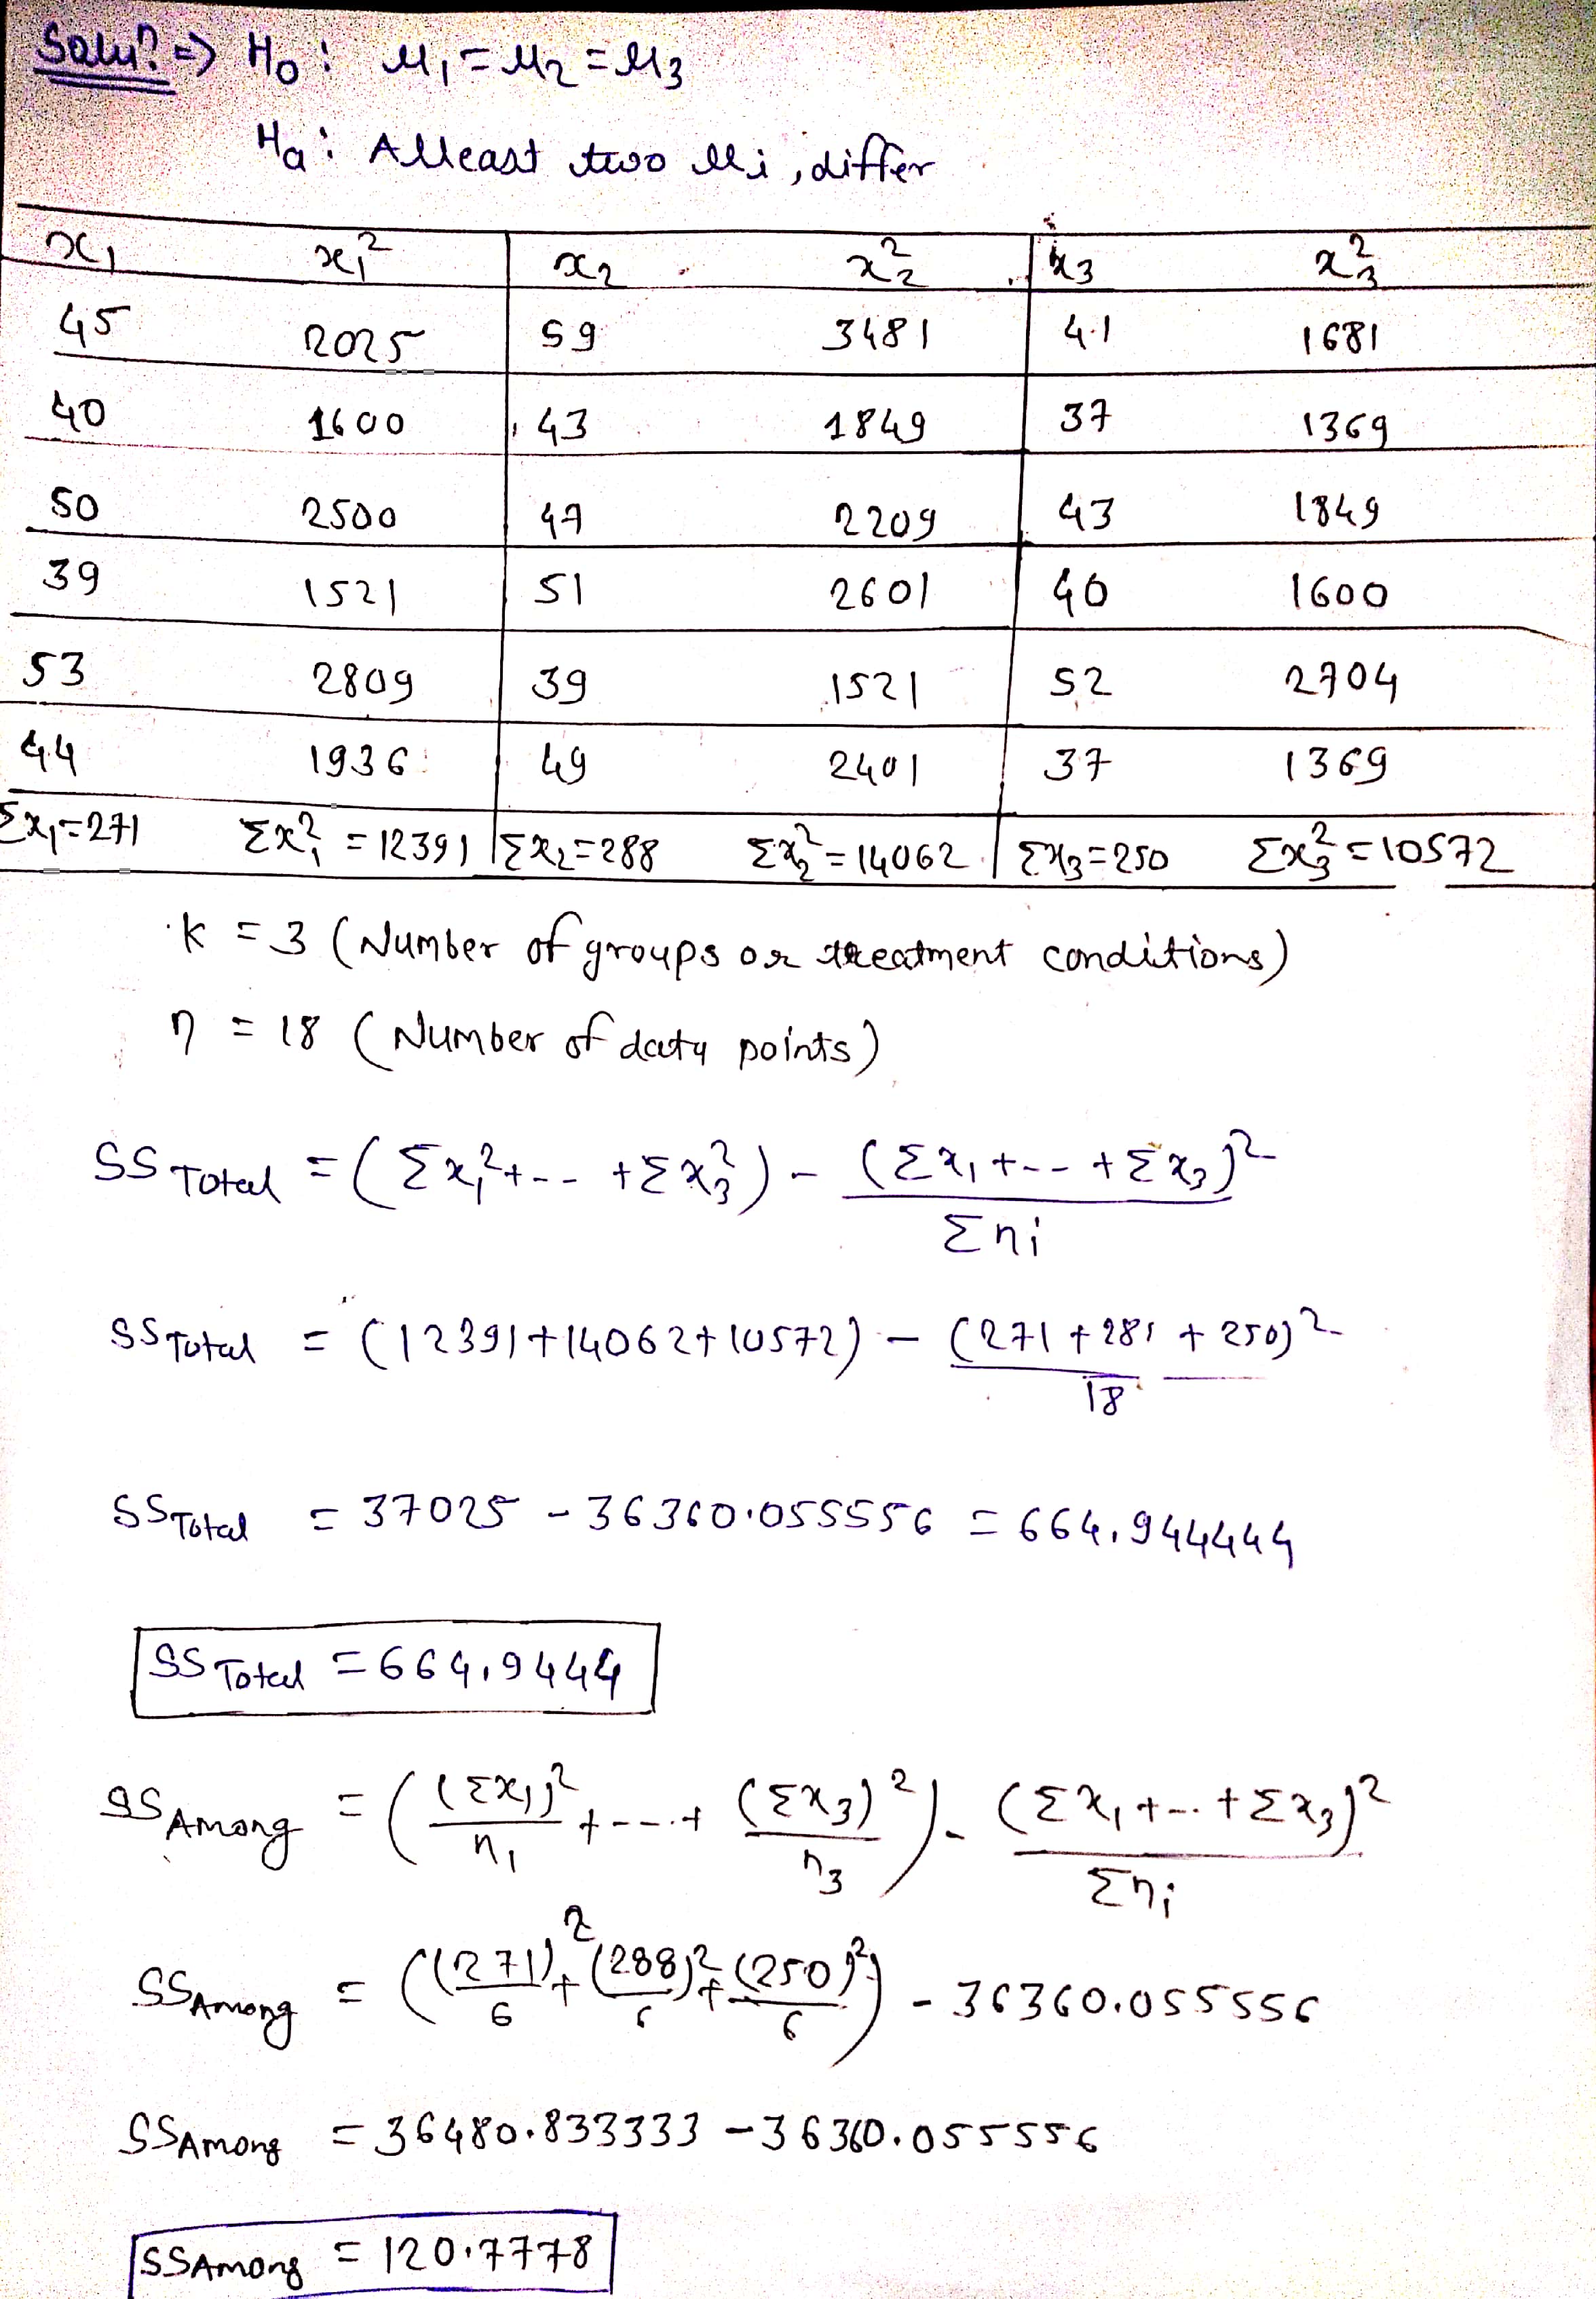 Solun => H0 : μ1 = μ2 = μ3
Ha : Atleast two μi , differ
x1 x1² x2 x2² x3 x3²
45 2025 59 3481 41 1681
40 1600 43 1849 37 1369
50 2500 47 2209 43 1849
39 1521 51 2601 40 1600
53 2809 39 1521 52 2704
44 1936 49 2401 37 1369
Σx1=271 Σx1² = 12391 Σx2=288 Σx2² = 14062 Σx3=250 Σx3² = 10572
k = 3 (Number of groups or treatment conditions)
n = 18 (Number of data points)
SS Total = (Σx1² + -- + Σx3²) - (Σx1 + -- + Σx3)² / Σni
SS Total = (12391+14062+10572) - (271 + 281 + 250)² / 18
SS Total = 37025 - 36360.055556 = 664.944444
SS Total = 664.9444
SS Among = ((Σx1)²/n1 + --- + (Σx3)²/n3) - (Σx1 + -- + Σx3)² / Σni
SS Among = ((271)²/6 + (288)²/6 + (250)²/6) - 36360.055556
SS Among = 36480.833333 - 36360.055556
SS Among = 120.7778